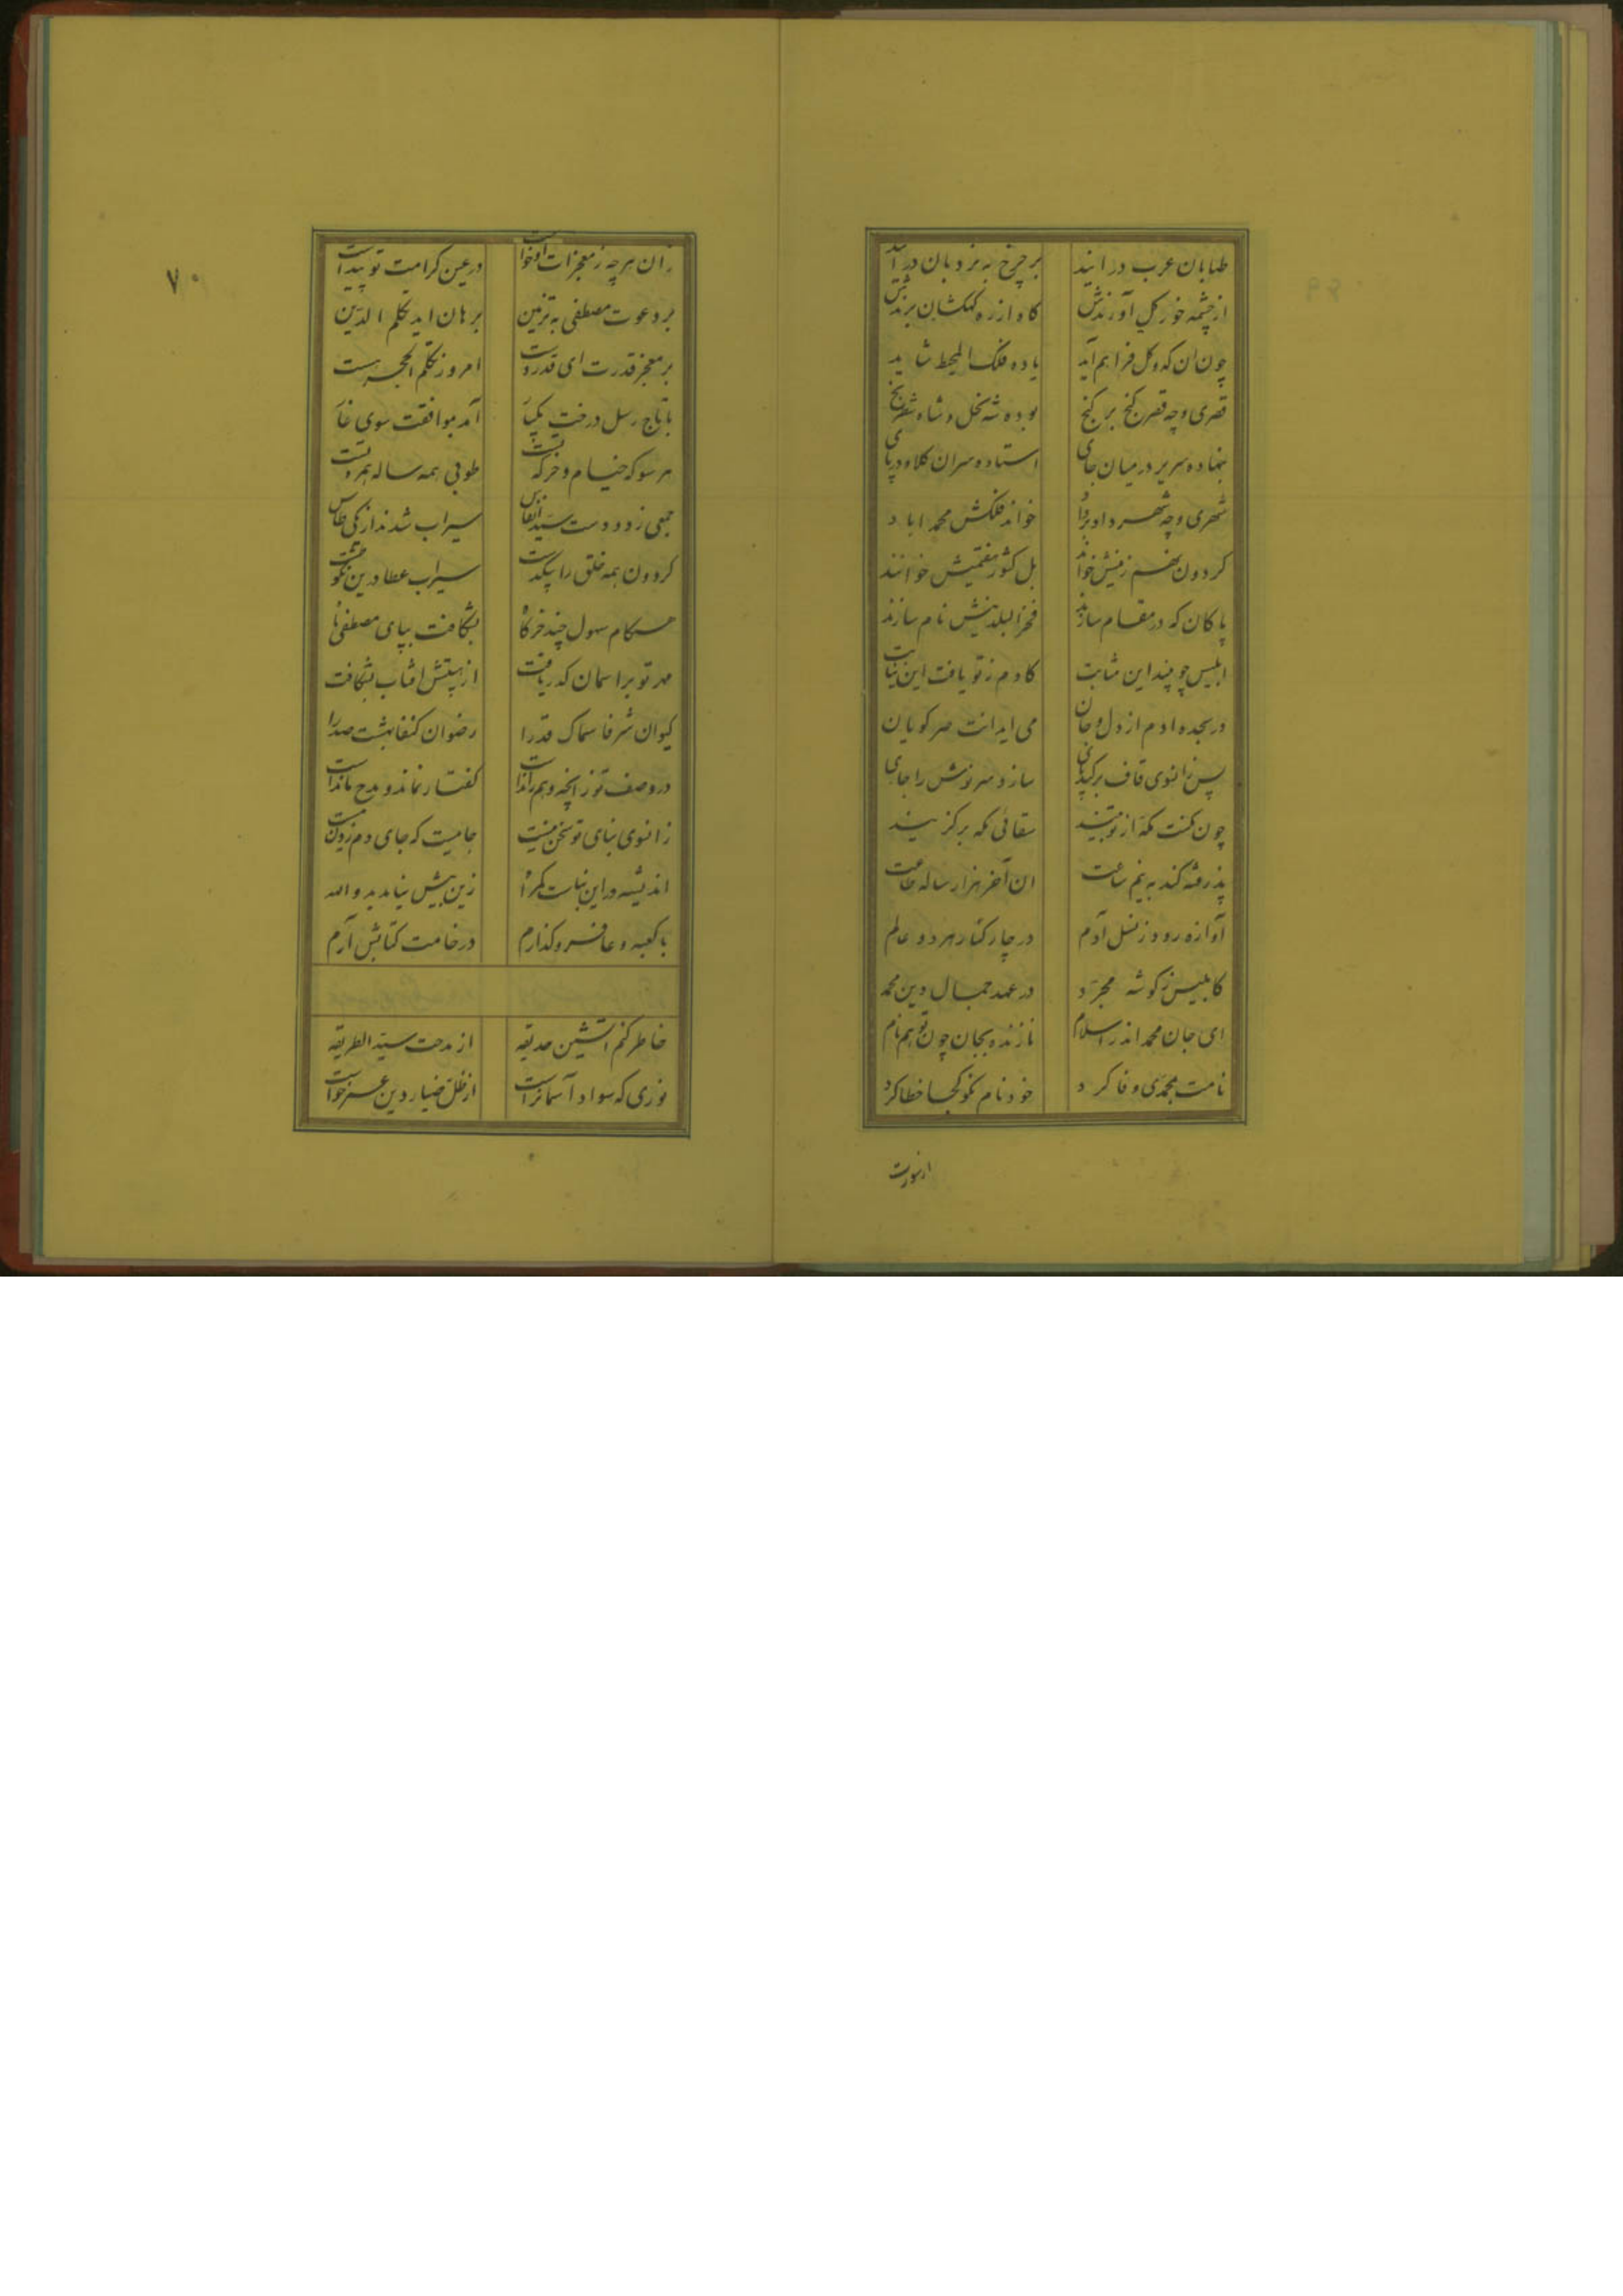 طنابان عرب در ایند بر چرخ به نردبان در آیند
از چشمه خور گل آورندش کاه از ره کهکشان برندش
چون ان که و گل فراهم آید یا ده فلک المحیط شاید
قصری و چه قصر گنج بر گنج بوده شه نخل و شاه شطرنج
بنهاده سریر در میان جای استاده سران کلاه در پای
شهری و چه شهر داد بر داد خواند فلکش محمد اباد
کردون نهم زمینش خوانند بل کشور هفتمیش خوانند
پاکان که در مقام سازند فخر البلدینش نام سازند
ابلیس چو بیند این مثابت کادم ز تو یافت این نیابت
در سجده ادم از دل و جان می اید انت مهر کویان
پس زانوی قاف بر کند پای سازد سر نوش را جای
چون کنت مکه از تو بیند سقائی مکه برگزیند
پذرفته کند به نیم ساعت ان آخر هزار ساله طاعت
آوازه رود ز نسل آدم در چار کنار هر دو عالم
کابلیس ز گوشه مجرد در عهد جمال دین محمد
ای جان محمد اندر اسلام نازنده بجان چون تو هم نام
نامت بمحمدی وفا کرد خود نام نکو کجا خطا کرد
از نورت
۷۰
زان هر چه ز معجزات او خواست در عین کرامت تو پیداست
بر دعوت مصطفی به تزمین برهان اید تکلم الدین
بر معجز قدرت ای قدر دست امروز تکلم الحجر هست
با تاج رسل درخت یکتا آمد بموافقت سوی غا
هر سو که خیام و خرکه تست طوبی همه ساله همره تست
جمعی ز دو دست سید انفاس سیراب شدند از یکی طاس
کردون همه خلق را بیکدست سیراب عطا درین نکو طشت
هنگام سهول چند خرگاه بشکافت بپای مصطفی ماه
مهر تو بر اسمان گذر یافت از هیبتش افتاب بشکافت
کیوان شرفا سماک قدرا رضوان کنفا بهشت صدرا
در وصف تو ز انچه وهم راندست گفتار نماند و مدح ماندست
زانوی ثنای تو سخن نیست جاییست که جای دم زدن نیست
اندیشه در این نبات گمراه زین بیش نیامد به والله
با کعبه دعا فرو گذارم در خامت کتابش آرم
خاطر کنم اتشین حدیقه از مدحت سید الطریقه
نوری که سواد آسمانراست از ظل ضیاء دین عز خواست